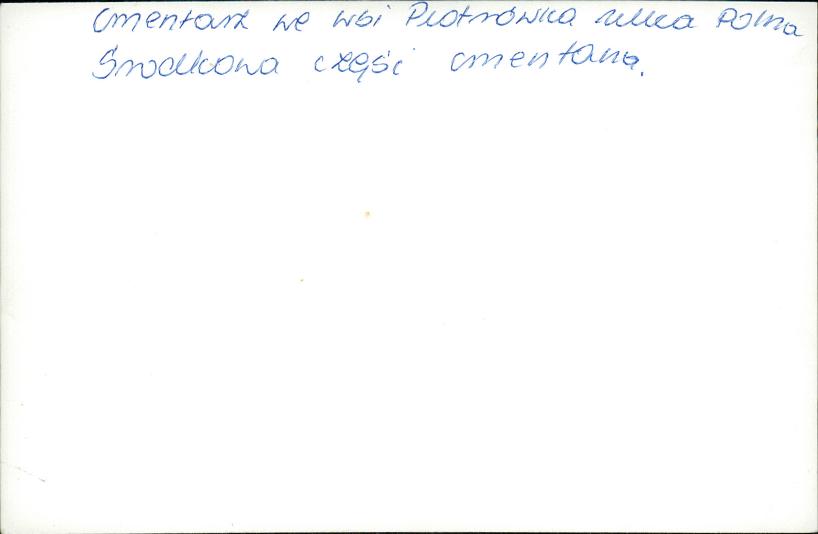 Cmentarz we wsi Piotrówka ulica Polna
Środkowa część cmentarza.